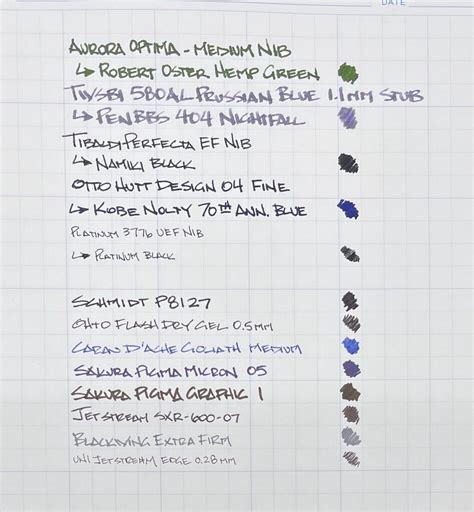 DATE
AURORA OPTIMA - MEDIUM NIB
↳ ROBERT OSTER HEMP GREEN
TWSBI 580AL PRUSSIAN BLUE 1.1MM STUB
↳ PENBBS 404 NIGHTFALL
TIBALDI PERFECTA EF NIB
↳ NAMIKI BLACK
OTTO HUTT DESIGN 04 FINE
↳ KOBE NOLTY 70TH ANN. BLUE
PLATINUM 3776 UEF NIB
↳ PLATINUM BLACK
SCHMIDT P8127
OHTO FLASH DRY GEL 0.5MM
CARAN D'ACHE GOLIATH MEDIUM
SAKURA PIGMA MICRON 05
SAKURA PIGMA GRAPHIC 1
JETSTREAM SXR-600-07
BLACKWING EXTRA FIRM
UNI JETSTREAM EDGE 0.28MM